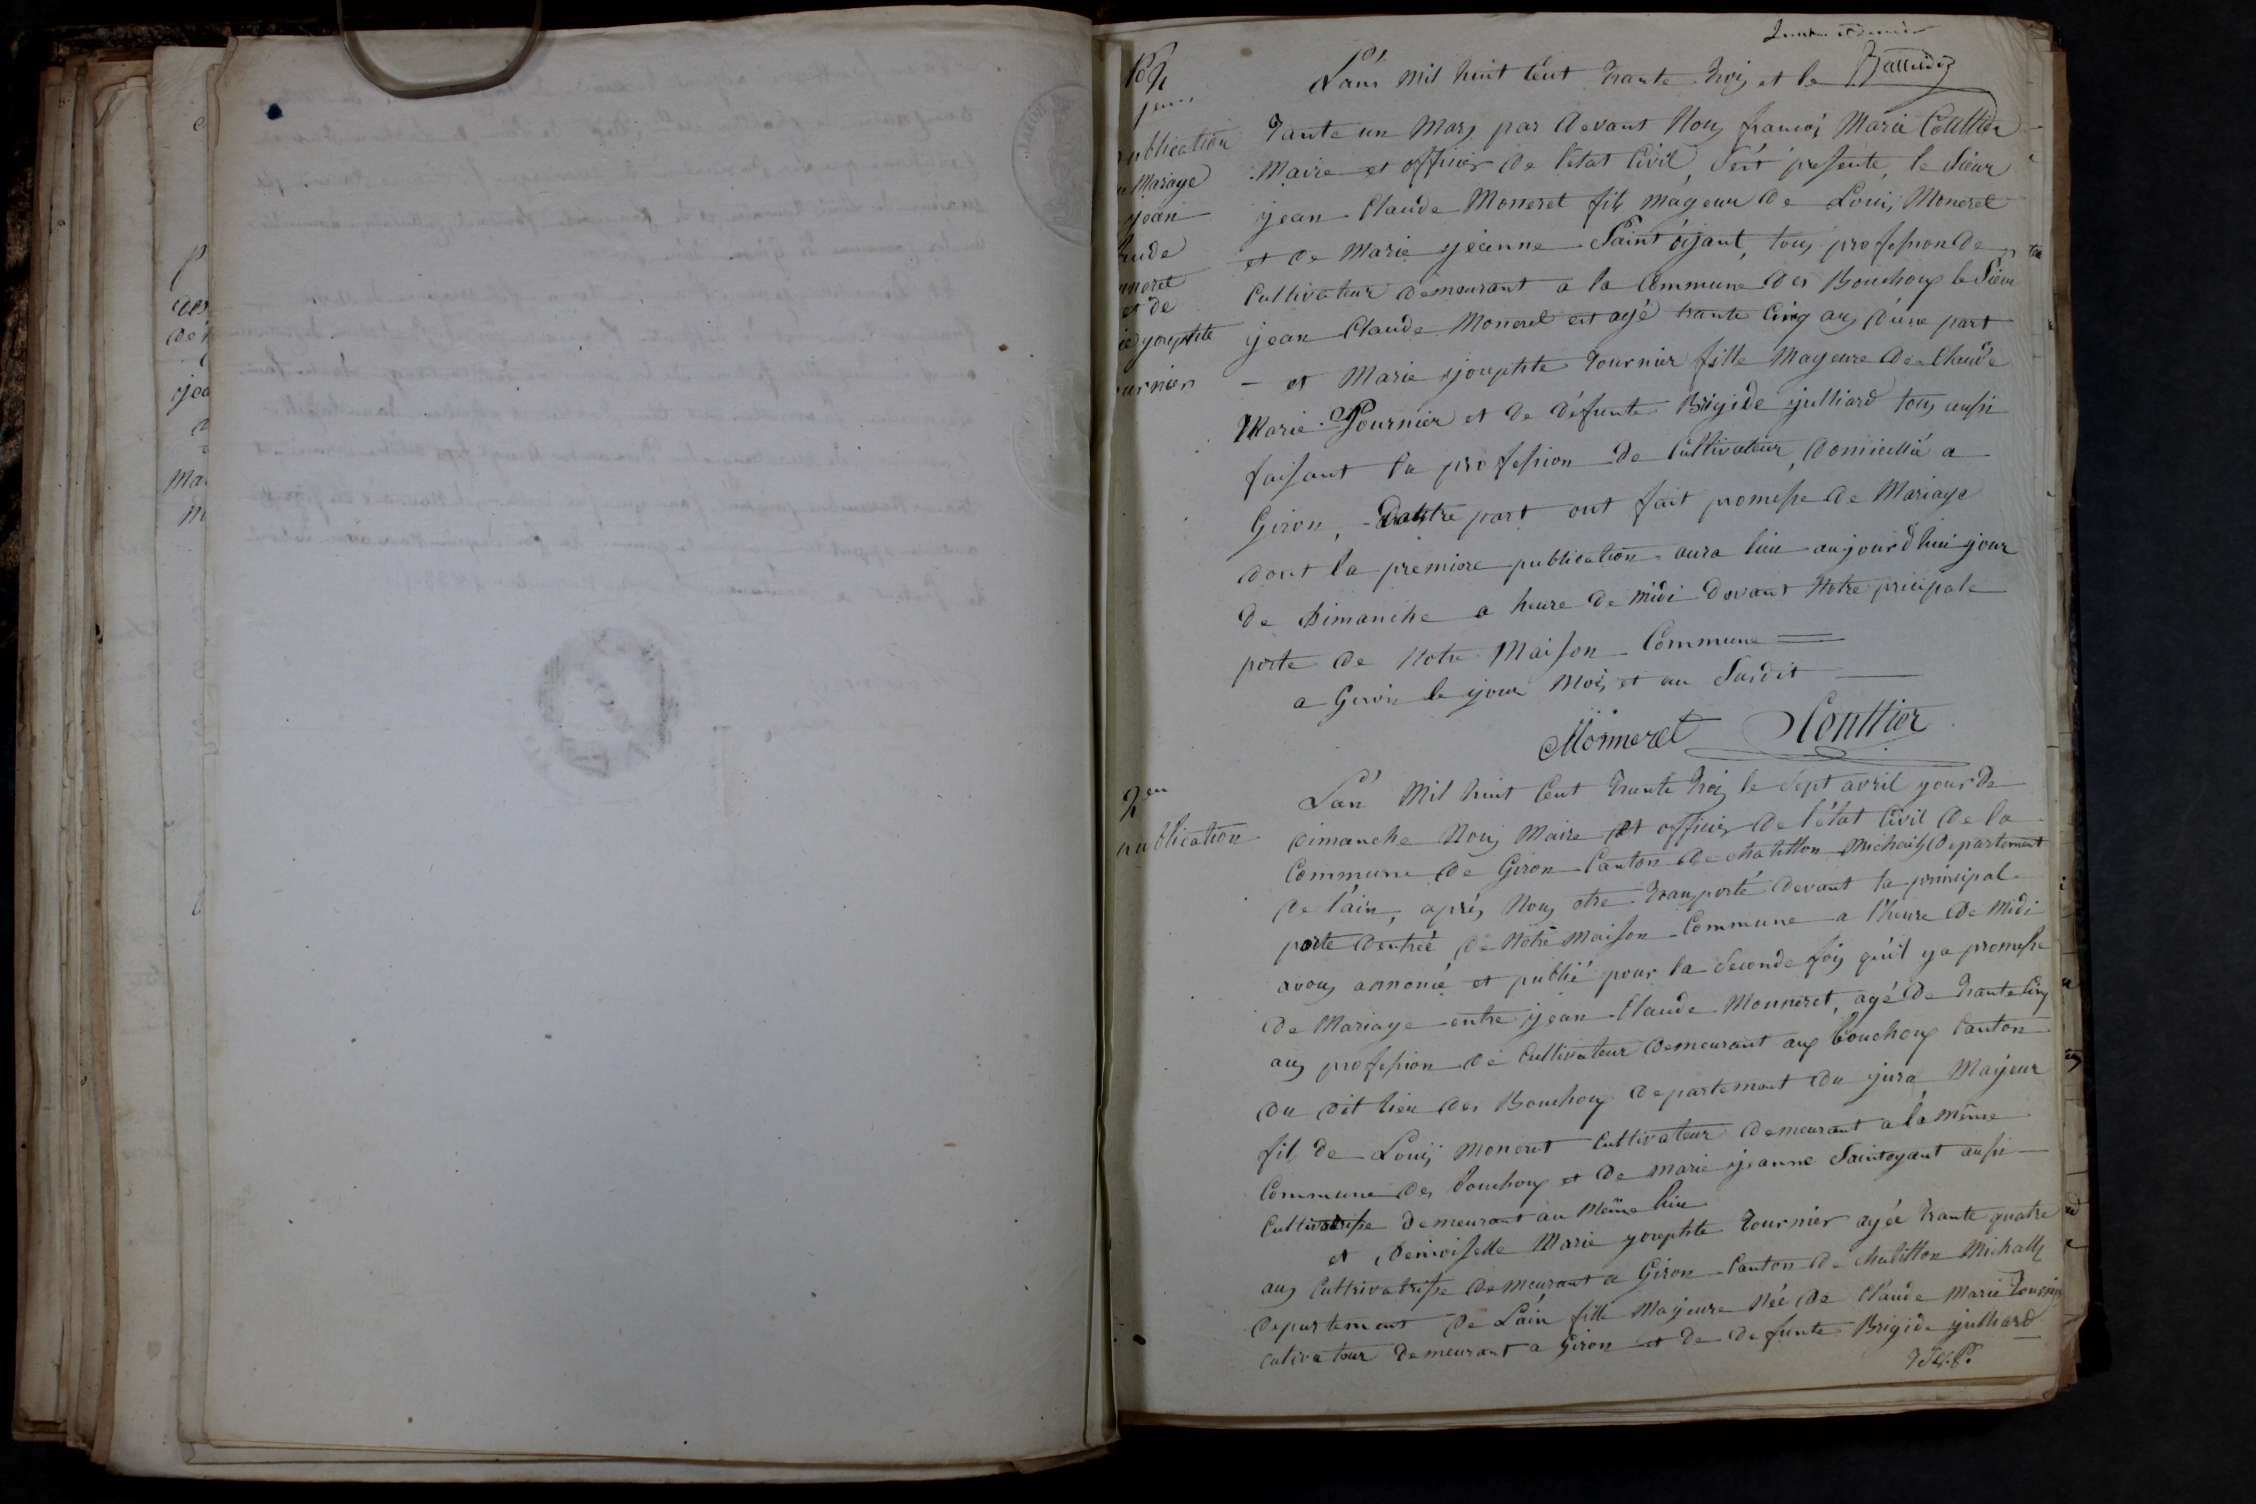 Lan mil huit cent trante trois et le
trante un Mars par devant Nous francois Marie Couttier
Maire et officier de l'état Civil, s'est presenté, le Sieur
jean Claude Moneret fils mageur de Louis Moneret
et de Marie jéanne Saint oijant, tous profession de
Cultivateur demeurant a la Commune des Bouchoux le Sieur
jean Claude Moneret est agé trante cinq ans d'une part
— et Marie josephte tournier fille Mageure de Claude
Marie Tournier et de défunte Brigide julliard tous aussi
faisant la profession de Cultivateur, domicillié a
Giron, D'autre part ont fait promesse de Mariage
dont la premiere publication aura lieu aujourd'hui jour
de Dimanche a heure de midi devant Notre pricipale
porte de Notre Maison Commune
a Giron le jour Mois et an Susdit
Monneret Couttier
publication
Mariage
jean
et de
josephte
2em
publication
Lan Mil huit Cent trante trois le Sept avril jour de
Dimanche Nous Maire et officier de l'état Civil de la
Commune de Giron Canton de chatillon Michaille Departement
de l'ain, aprés Nous etre transporté devant la principal
porte d'entréé de Notre Maison Commune a l'heure de Midi
avons annoncé et publié pour la Seconde fois qu'il y a promesse
de Mariage entre jean Claude Monneret, agé de trante cinq
ans profession de Cultivateur demeurant aux bouchoux Canton
du dit lieu des Bouchoux departement du jura Majeur
fils de Louis Moneret Cultivateur demeurant a la même
Commune des bouchoux et de Marie jeanne Saintoyant aussi
Cultivatrisse demeurant au Même lieu
et Demoiselle Marie josephte tournier agéé trante quatre
ans Cultrivatrisse demeurant a Giron Canton de chatillon Michaille
departement de L'ain fille Majeure Néé de Claude Marie Tournier
cultivateur demeurant a Giron et de defunte Brigide julliard